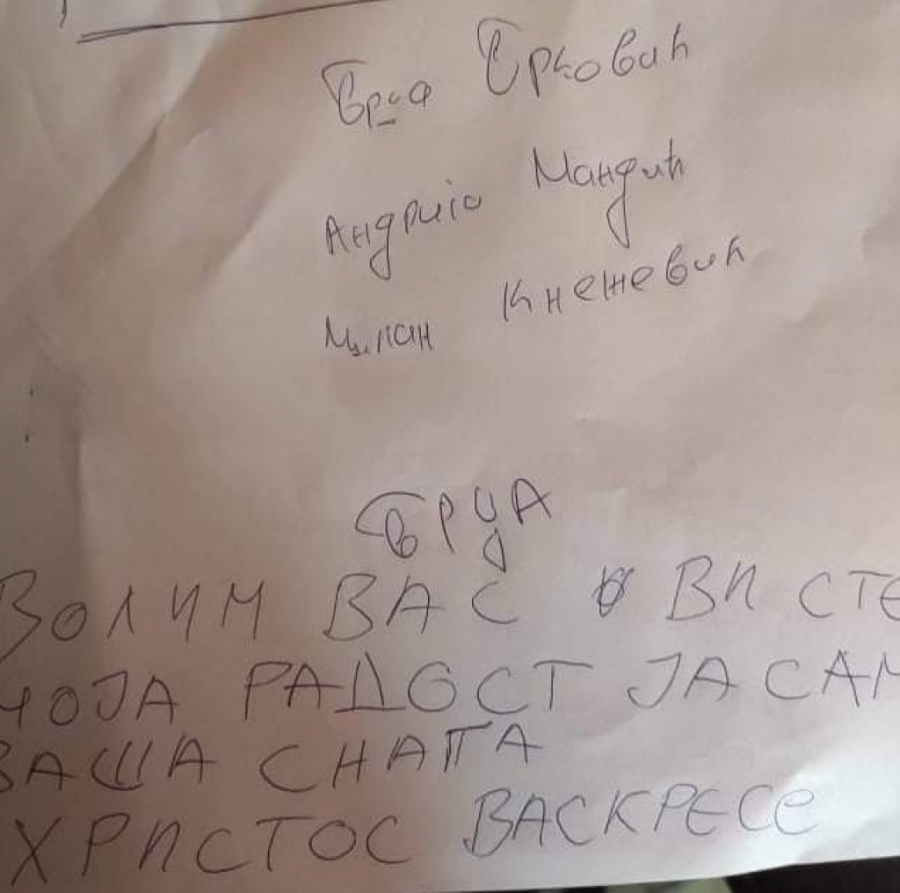 Ђрца Ђрковић
Андрија Мандић
Милан Кнежевић
ЂРЦА
ВОЛИМ ВАС ВИ СТЕ
МОЈА РАДОСТ ЈА САМ
ВАША СНАГА
ХРИСТОС ВАСКРЕСЕ